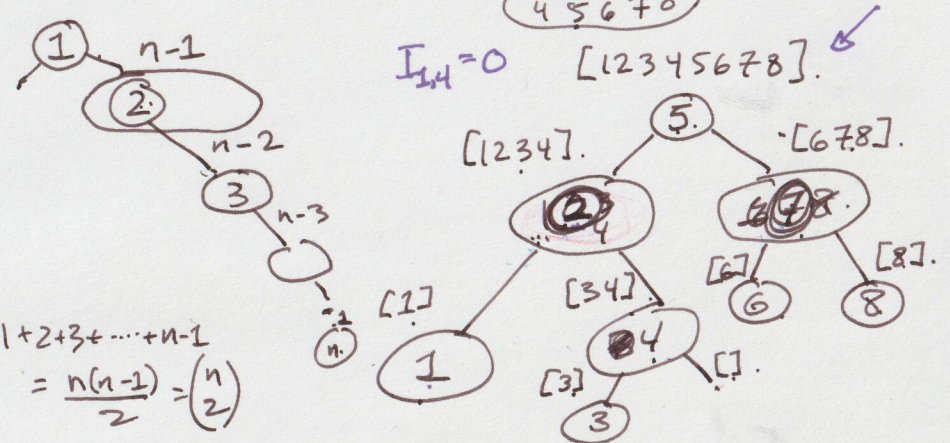 4 5 6 7 8
1
n-1
2
n-2
3
n-3
1
n.
1+2+3+.....+n-1
= n(n-1)/2 = (n 2)
I1,4 = 0
[1 2 3 4 5 6 7 8].
5
[1 2 3 4].
[6 7 8].
2
4
7 8
[1]
[3 4]
[6]
[8].
1
4
6
8
[3]
[].
3